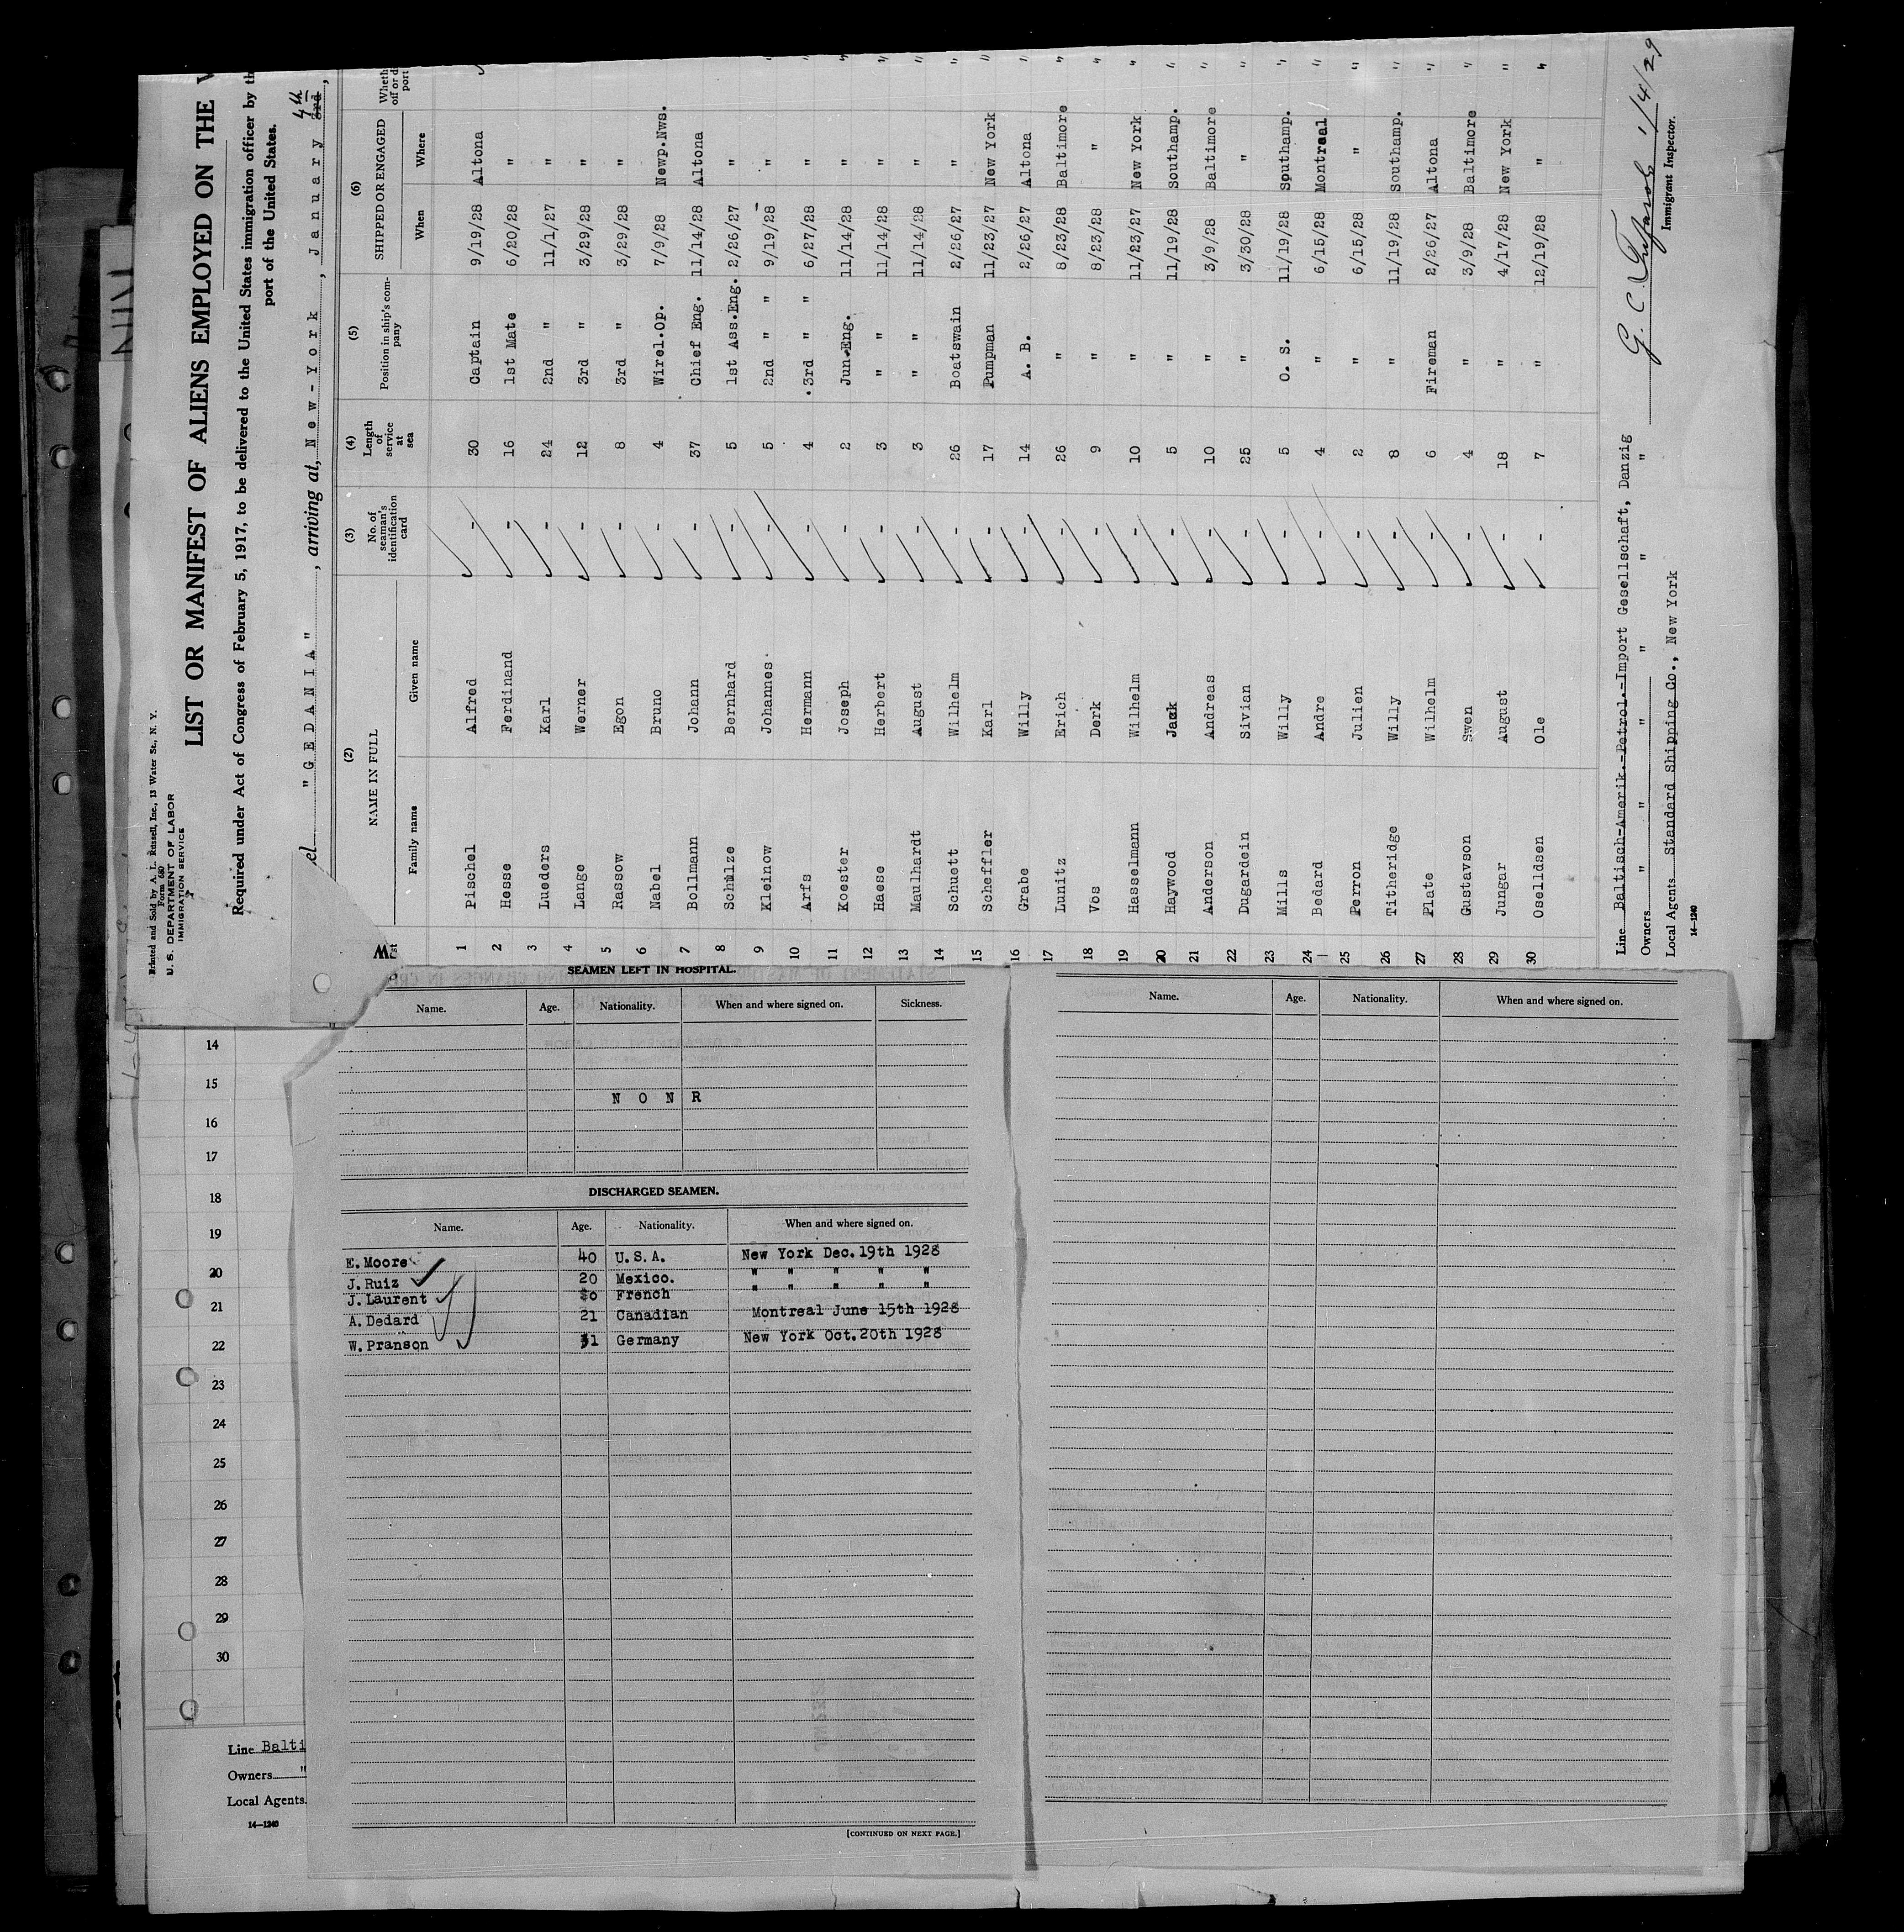 Printed and Sold by A. L. Russell, Inc., 13 Water St., N. Y.
Form 680
U. S. DEPARTMENT OF LABOR
IMMIGRATION SERVICE
LIST OR MANIFEST OF ALIENS EMPLOYED ON THE V
Required under Act of Congress of February 5, 1917, to be delivered to the United States immigration officer by th
port of the United States.
el "GEDANIA", arriving at, New-York, January 3rd 4th,
(2) (3) (4) (5) (6)
NAME IN FULL No. of seaman's identification card Length of service at sea Position in ship's company SHIPPED OR ENGAGED Wheth
Family name Given name When Where off or d port
1 Pischel Alfred - 30 Captain 9/19/28 Altona
2 Hesse Ferdinand - 16 1st Mate 6/20/28 "
3 Lueders Karl - 24 2nd " 11/1/27 "
4 Lange Werner - 12 3rd " 3/29/28 "
5 Rassow Egon - 8 3rd " 3/29/28 "
6 Nabel Bruno - 4 Wirel.Op. 7/9/28 Newp.Nws.
7 Bollmann Johann - 37 Chief Eng. 11/14/28 Altona "
8 Schulze Bernhard - 5 1st Ass.Eng. 2/26/27 " "
9 Kleinow Johannes - 5 2nd " " 9/19/28 " "
10 Arfs Hermann - 4 3rd " " 6/27/28 " "
11 Koester Joseph - 2 Jun.Eng. 11/14/28 " "
12 Haese Herbert - 3 " " 11/14/28 " "
13 Maulhardt August - 3 " " 11/14/28 " "
14 Schuett Wilhelm - 26 Boatswain 2/26/27 " "
15 Scheffler Karl - 17 Pumpman 11/23/27 New York "
16 Grabe Willy - 14 A. B. 2/26/27 Altona "
17 Lunitz Erich - 26 " 8/23/28 Baltimore "
18 Vos Derk - 9 " 8/23/28 " "
19 Hasselmann Wilhelm - 10 " 11/23/27 New York "
20 Haywood Jack - 5 " 11/19/28 Southamp. "
21 Anderson Andreas - 10 " 3/9/28 Baltimore "
22 Dugardein Sivian - 25 " 3/30/28 " "
23 Mills Willy - 5 O. S. 11/19/28 Southamp. "
24 Bedard Andre - 4 " 6/15/28 Montreal "
25 Perron Julien - 2 " 6/15/28 " "
26 Titheridge Willy - 8 " 11/19/28 Southamp. "
27 Plate Wilhelm - 6 Fireman 2/26/27 Altona "
28 Gustavson Swen - 4 " 3/9/28 Baltimore "
29 Jungar August - 18 " 4/17/28 New York "
30 Oselldsen Ole - 7 " 12/19/28 " "
Line Baltisch-Amerik.-Petrol.-Import Gesellschaft, Danzig
Owners " " " " " "
Local Agents Standard Shipping Co., New York
14-1240
G. C. 1/4/29
Immigrant Inspector.
SEAMEN LEFT IN HOSPITAL.
Name. Age. Nationality. When and where signed on. Sickness.
N O N R
DISCHARGED SEAMEN.
Name. Age. Nationality. When and where signed on.
E. Moore 40 U.S.A. New York Dec. 19th 1928
J. Ruiz 20 Mexico. " " " " "
J. Laurent French " " " " "
A. Dedard 21 Canadian Montreal June 15th 1928
W. Pranson 31 Germany New York Oct. 20th 1928
[CONTINUED ON NEXT PAGE.]
Name. Age. Nationality. When and where signed on.
14
15
16
17
18
19
20
21
22
23
24
25
26
27
28
29
30
Line Balti
Owners "
Local Agents.
14-1240